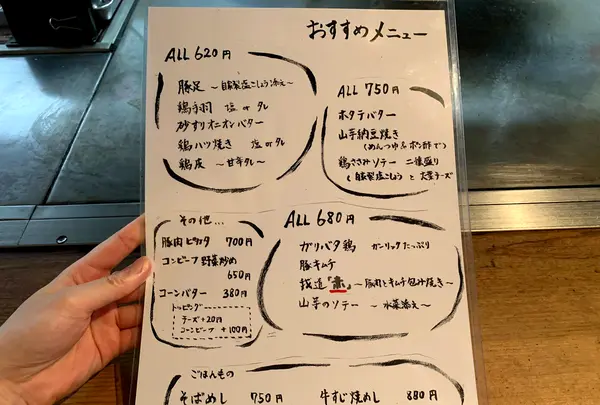 おすすめメニュー
ALL 620円
豚足 ～自家製塩こしょう添え～
鶏手羽 塩 or タレ
砂ずりオニオンバター
鶏ハツ焼き 塩 or タレ
鶏皮 ～甘辛タレ～
ALL 750円
ホタテバター
山芋納豆焼き
(めんつゆ or ポン酢で)
鶏ささみソテー 二種盛り
(自家製塩こしょう と 大葉チーズ
その他...
豚肉ピカタ 700円
コンビーフ野菜炒め
650円
コーンバター 380円
トッピング
チーズ +20円
コーンビーフ +100円
ALL 680円
ガリバタ鶏 ガーリックたっぷり
豚キムチ
「赤」 ～豚肉とキムチ包み焼き～
山芋のソテー ～水菜添え～
ごはんもの
そばめし 750円
牛すじ焼めし 880円